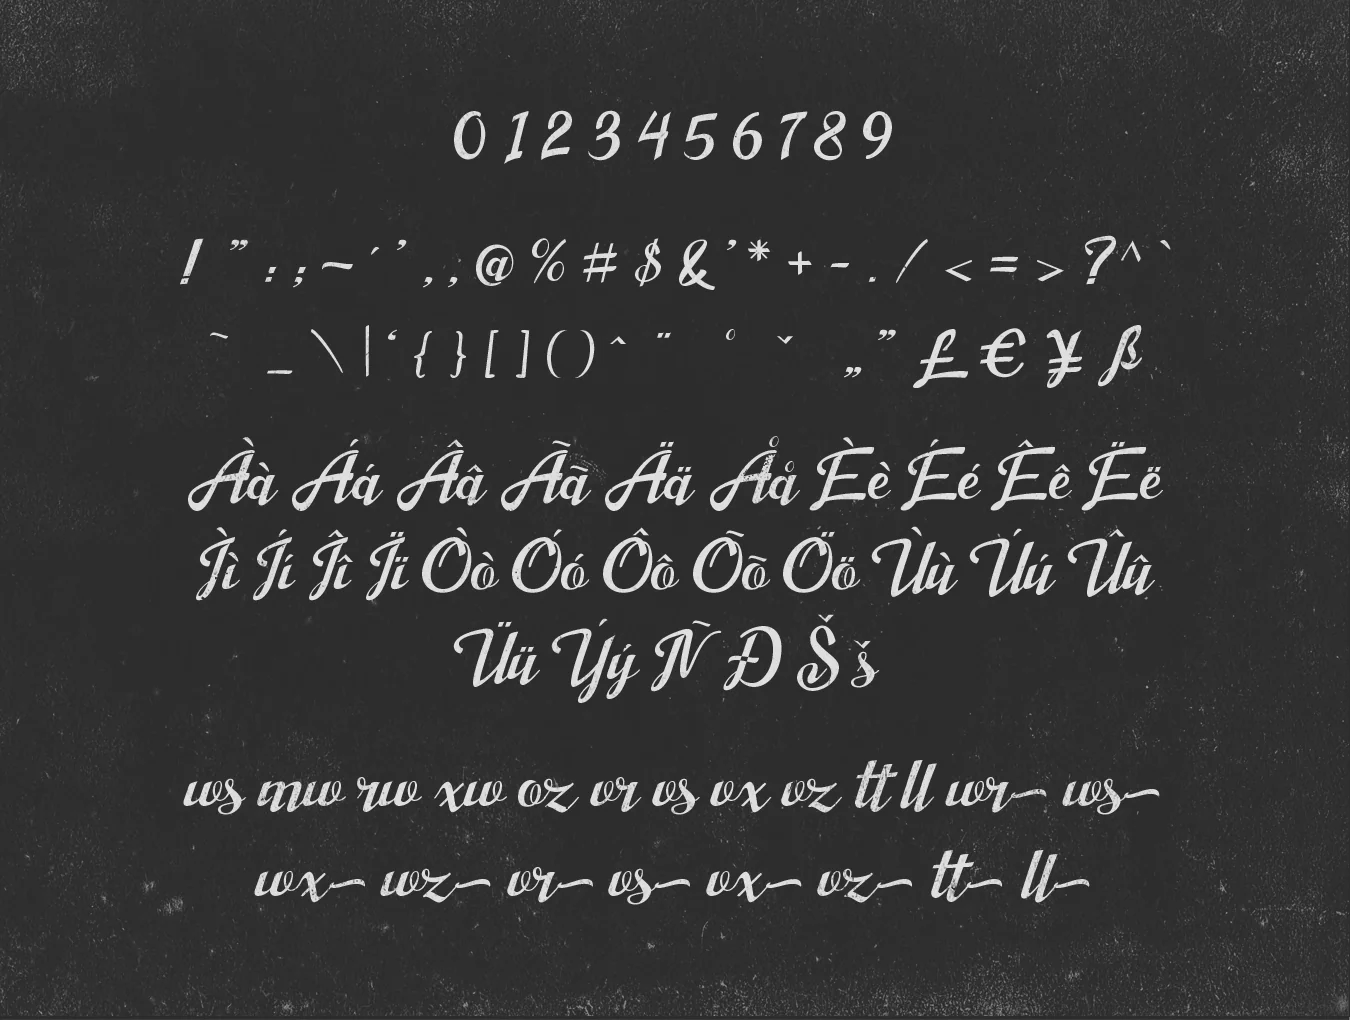 0 1 2 3 4 5 6 7 8 9
! ” : ; ~ ´ ’ , , @ % # $ & ’ * + - . / < = > ? ^ `
˜ _ \ | ‘ { } [ ] ( ) ˆ ¨ ° ˇ „ ” £ € ¥ ß
Àà Áá Ââ Ãã Ää Åå Èè Éé Êê Ëë
Ìì Íí Îî Ïï Òò Óó Ôô Õõ Öö Ùù Úú Ûû
Üü Ýý Ñ Ð Š š
ws mw rw xw oz or os ox oz tt ll wr ws
wx wz or os ox oz tt ll